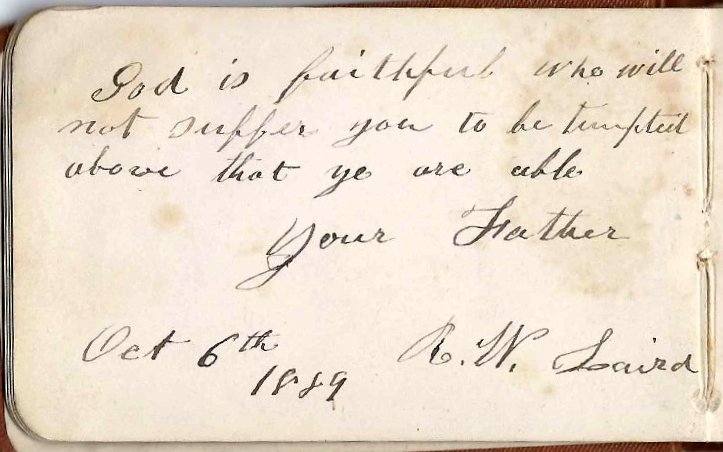 God is faithful who will
not suffer you to be tempted
above that ye are able
Your Father
Oct 6th R. W. Laird
1889